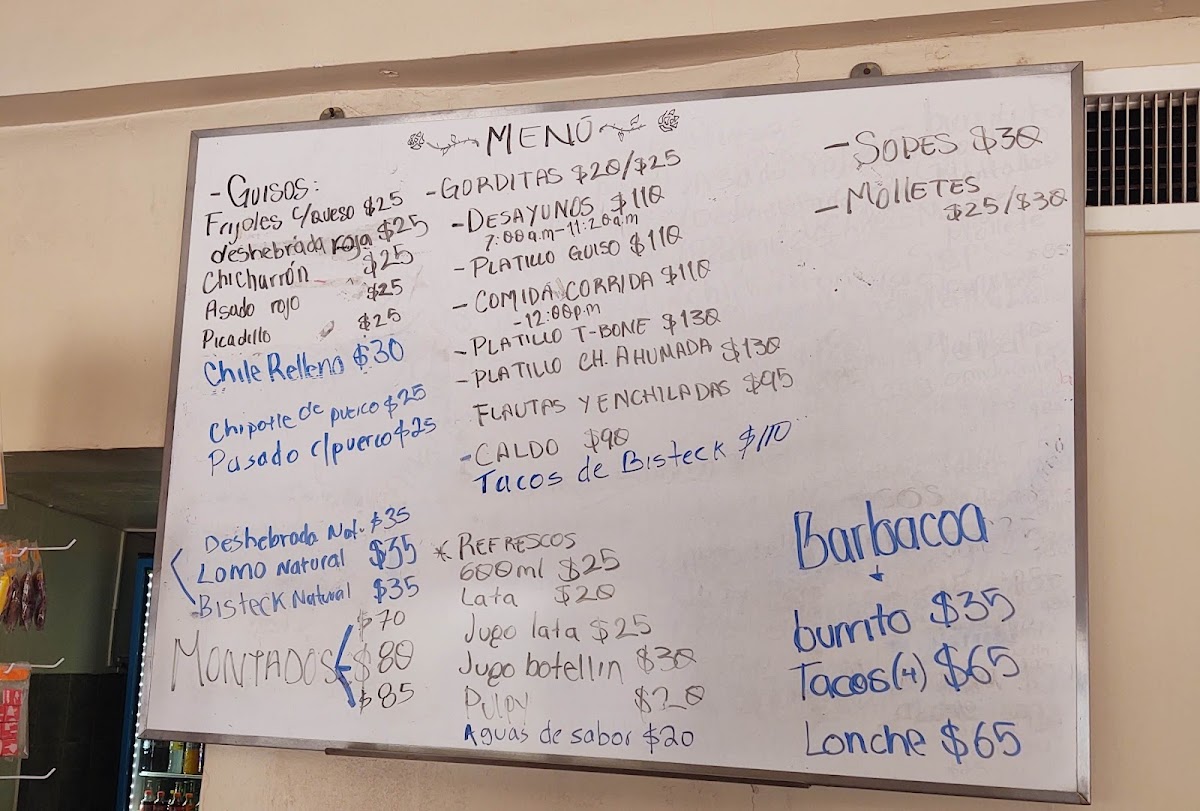 MENÚ
- GUISOS:
Frijoles c/queso $25
deshebrada roja $25
Chicharrón $25
Asado rojo $25
Picadillo $25
Chile Relleno $30
Chipotle de puerco $25
Pasado c/puerco $25
Deshebrada Nat. $35
Lomo Natural $35
Bisteck Natural $35
MONTADOS
$70
$80
$85
- GORDITAS $20/$25
- DESAYUNOS $110
7:00a.m-11:20a.m
- PLATILLO GUISO $110
- COMIDA CORRIDA $110
-12:00p.m
- PLATILLO T-BONE $130
- PLATILLO CH. AHUMADA $130
FLAUTAS Y ENCHILADAS $95
- CALDO $90
Tacos de Bisteck $110
* REFRESCOS
600ml $25
Lata $20
Jugo lata $25
Jugo botellin $30
Pulpy $20
Aguas de sabor $20
- SOPES $30
- MOLLETES
$25/$30
Barbacoa
burrito $35
Tacos(4) $65
Lonche $65